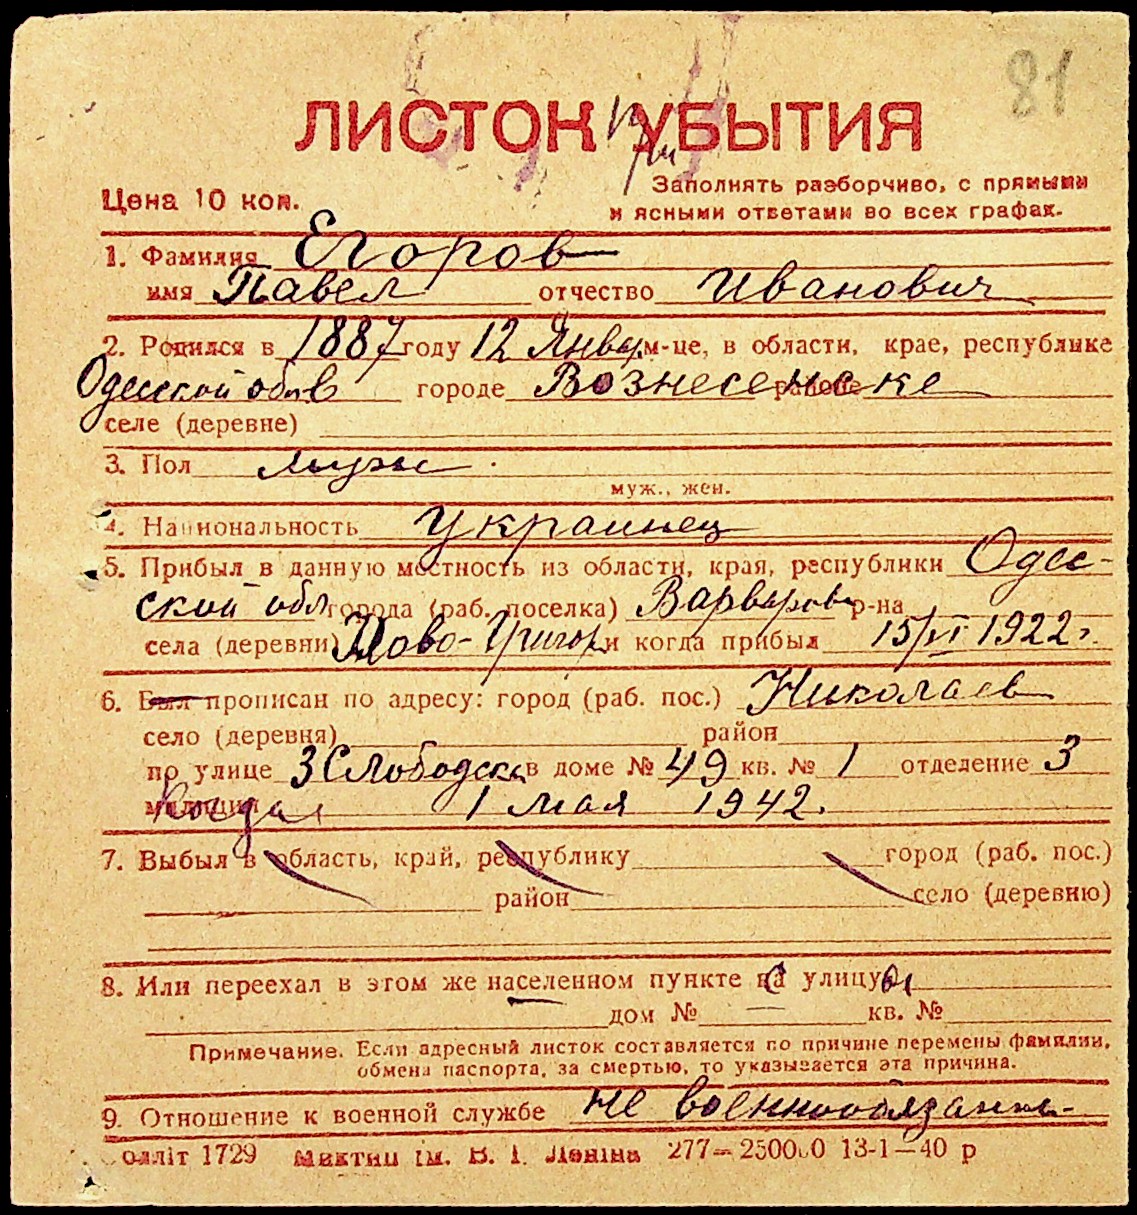 81
ЛИСТОК УБЫТИЯ
Цена 10 коп.
Заполнять разборчиво, с прямыми
и ясными ответами во всех графах.
1. Фамилия Егоров
имя Павел отчество Иванович
2. Родился в 1887 году 12 Январ м-це, в области, крае, республике
Одесской обл в городе Вознесенске районе
селе (деревне)
3. Пол муж
муж., жен.
4. Национальность украинец
5. Прибыл в данную местность из области, края, республики Одес-
ской обл города (раб. поселка) Варваров р-на
села (деревни) Ново-Григор и когда прибыл 15/VI 1922 г.
6. Был прописан по адресу: город (раб. пос.) Николаев
село (деревня) район
по улице 3 Слободска в доме № 49 кв. № 1 отделение 3
милиции Когда 1 мая 1942.
7. Выбыл в область, край, республику город (раб. пос.)
район село (деревню)
8. Или переехал в этом же населенном пункте на улицу
дом № — кв. №
Примечание. Если адресный листок составляется по причине перемены фамилии,
обмена паспорта, за смертью, то указывается эта причина.
9. Отношение к военной службе не военнообязан
олліт 1729 ім. В. І. Леніна 277—250000 13-1—40 р